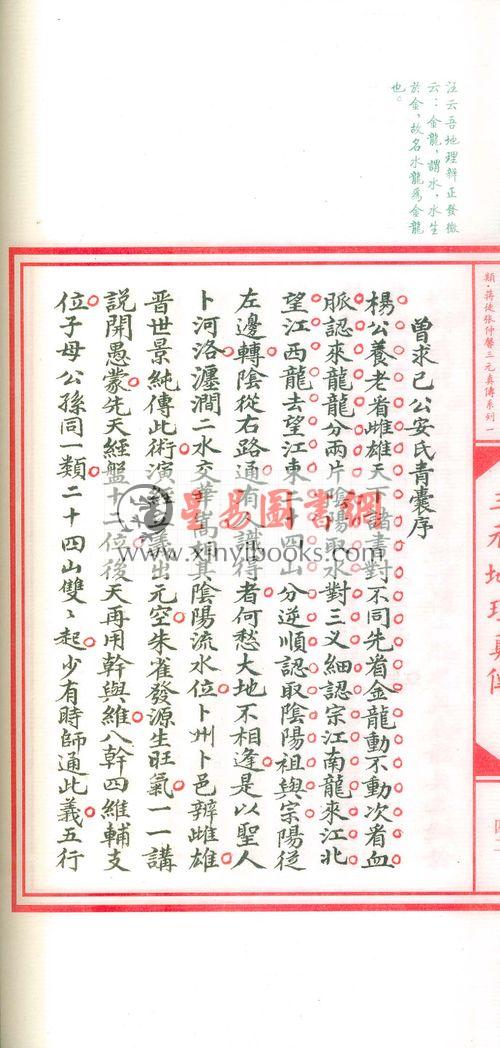 汪云吾地理辨正發微
云：金龍，謂水，水生
於金，故名水龍為金龍
也。
類·蔣徒張仲馨三元真傳系列一
三元地理真傳
曾求己公安氏青囊序
楊公養老看雌雄天下諸書對不同先看金龍動不動次看血
脈認來龍龍分兩片陰陽取水對三义細認宗江南龍來江北
望江西龍去望江東二十四山分逆順認取陰陽祖與宗陽從
左邊轉陰從右路通有人識得者何愁大地不相逢是以聖人
卜河洛瀍澗二水交華嵩相其陰陽流水位卜州卜邑辨雌雄
晉世景純傳此術演經立義出元空朱雀發源生旺氣一一講
說開愚蒙先天經盤十二位後天再用幹與維八幹四維輔支
位子母公孫同一類二十四山雙〻起少有時師通此義五行
星易圖書網
www.xinyibooks.com